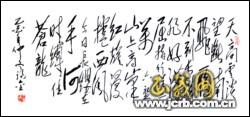 天高云淡
望断南
飞雁
不到长城
非好汉
屈指行程二
万六盘
山上高峰
红旗漫
卷西风
今日长缨在
手何
时缚住
苍龙
正义网
www.jcrb.com.cn